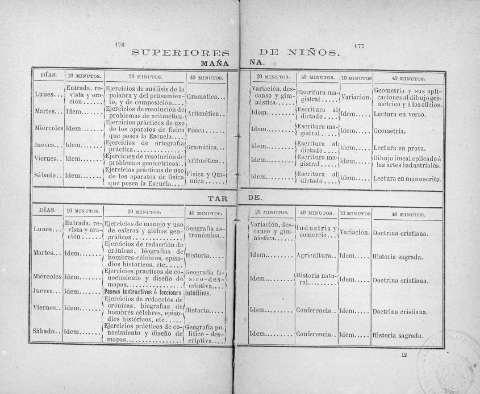 176
177
SUPERIORES DE NIÑOS.
MAÑANA.
DÍAS. 20 MINUTOS. 20 MINUTOS. 40 MINUTOS.
Lunes... Entrada, revista y oración..... Ejercicios de análisis de la palabra y del pensamiento, y de composición.... Gramática...
Martes.. Idem..... Ejercicios de resolución de problemas de aritmética. Aritmética...
Miércoles Idem..... Ejercicios prácticos de uso de los aparatos de física que posea la Escuela.... Física.....
Jueves... Idem..... Ejercicios de ortografía práctica..... Gramática...
Viernes.. Idem..... Ejercicios de resolución de problemas geométricos. Aritmética...
Sábado.. Idem..... Ejercicios prácticos de uso de los aparatos de física que posea la Escuela.... Física y Química.....
20 MINUTOS. 40 MINUTOS. 10 MINUTOS. 40 MINUTOS.
Variación, descanso y gimnástica..... Escritura magistral..... Variación. Geometría y sus aplicaciones al dibujo geométrico y al sólidos.
Idem..... Escritura al dictado..... Idem..... Lectura en verso.
Idem..... Escritura magistral..... Idem..... Geometría.
Idem..... Escritura al dictado..... Idem..... Lectura en prosa.
Idem..... Escritura magistral..... Idem..... Dibujo lineal aplicado á las artes industriales.
Idem..... Escritura al dictado..... Idem..... Lectura en manuscrito.
TARDE.
DÍAS. 20 MINUTOS. 20 MINUTOS. 40 MINUTOS.
Lunes... Entrada, revista y oración..... Ejercicios de manejo y uso de esferas y mapas geográficos..... Geografía astronómica...
Martes.. Idem..... Ejercicios de redacción de crónicas, biografías de hombres célebres, episodios históricos, etc.... Historia.....
Miércoles Idem..... Ejercicios prácticos de conocimiento y diseño de mapas..... Geografía físico-descriptiva.....
Jueves... Idem..... Paseos instructivos ó lecciones intuitivas.
Viernes.. Idem..... Ejercicios de redacción de crónicas, biografías de hombres célebres, episodios históricos, etc.... Historia.....
Sábado.. Idem..... Ejercicios prácticos de conocimiento y diseño de mapas..... Geografía político-descriptiva...
20 MINUTOS. 40 MINUTOS. 10 MINUTOS. 40 MINUTOS.
Variación, descanso y gimnástica..... Industria y comercio.. Variación. Doctrina cristiana.
Idem..... Agricultura.. Idem..... Historia sagrada.
Idem..... Historia natural..... Idem..... Doctrina cristiana.
Idem..... Conferencia.. Idem..... Doctrina cristiana.
Idem..... Conferencia.. Idem..... Historia sagrada.
12